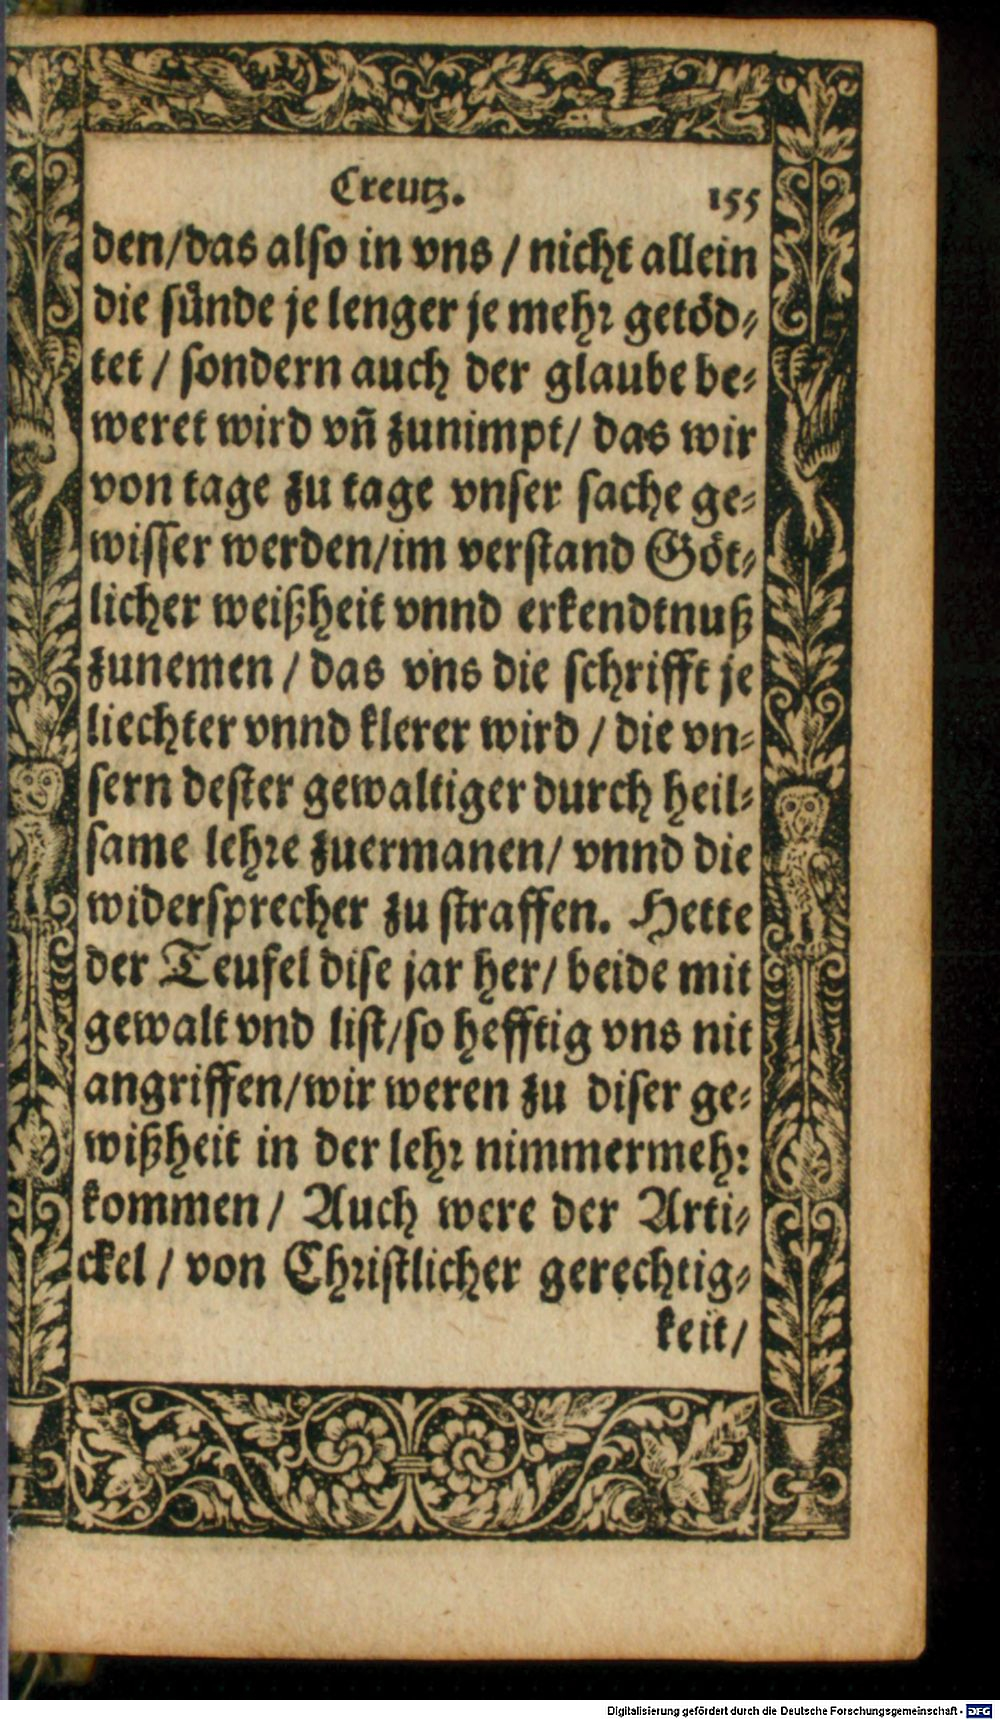 Creutz. 155
den/das also in vns / nicht allein
die sünde je lenger je mehr getöd⸗
tet / sondern auch der glaube be⸗
weret wird vñ zunimpt/ das wir
von tage zu tage vnser sache ge⸗
wisser werden/im verstand Göt⸗
licher weißheit vnnd erkendtnuß
zunemen / das vns die schrifft je
liechter vnnd klerer wird / die vn⸗
sern dester gewaltiger durch heil⸗
same lehre zuermanen/ vnnd die
widersprecher zu straffen. Hette
der Teufel dise jar her/ beide mit
gewalt vnd list/so hefftig vns nit
angriffen/wir weren zu diser ge⸗
wißheit in der lehr nimmermehr
kommen / Auch were der Arti⸗
ckel / von Christlicher gerechtig⸗
keit/
Digitalisierung gefördert durch die Deutsche Forschungsgemeinschaft - DFG